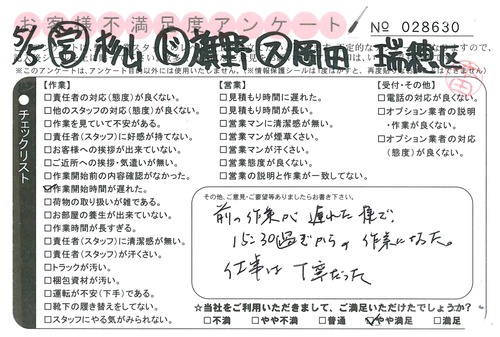 お客様不満足度アンケート
№ 028630
5/5 営 杉山 ド 鷲野 ス 岡田 瑞穂区
チェックリスト
【作業】
□責任者の対応(態度)が良くない。
□他のスタッフの対応(態度)が良くない。
□作業を見ていて不安がある。
□責任者(スタッフ)に好感が持てない。
□お客様への挨拶が出来ていない。
□ご近所への挨拶・気遣いが無い。
□作業開始前の内容確認がなかった。
☑作業開始時間が遅れた。
□荷物の取り扱いが雑である。
□お部屋の養生が出来ていない。
□作業時間が長すぎる。
□責任者(スタッフ)に清潔感が無い。
□責任者(スタッフ)が汗くさい。
□トラックが汚い。
□梱包資材が汚い。
□運転が不安(下手)である。
□靴下の履き替えをしてない。
□スタッフにやる気がみられない。
【営業】
□見積もり時間に遅れた。
□見積もり時間が長い。
□営業マンに清潔感が無い。
□営業マンが煙草くさい。
□営業マンが汗くさい。
□営業態度が良くない。
□営業の説明と作業が一致してない。
【受付・その他】
□電話の対応が良くない。
□オプション業者の説明・作業が良くない。
□オプション業者の対応(態度)が良くない。
その他、ご意見・ご要望等ありましたらお書き下さい。
前の作業が遅れた様で、
15:30過ぎからの作業になった。
仕事は丁寧だった
☆当社をご利用いただきまして、ご満足いただけでしょうか?
□不満 □やや不満 □普通 ☑やや満足 □満足